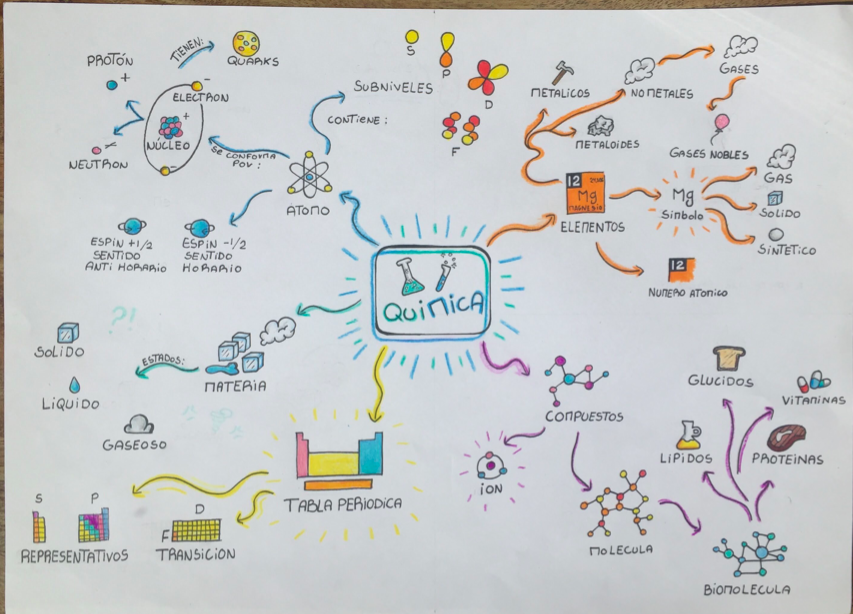 QUIMICA
ATOMO
SE CONFORMA
POR:
ELECTRON
NÚCLEO
PROTÓN
NEUTRON
TIENEN:
QUARKS
CONTIENE:
SUBNIVELES
S
P
D
F
ESPIN +1/2
SENTIDO
ANTI HORARIO
ESPIN -1/2
SENTIDO
HORARIO
ELEMENTOS
12
Mg
MAGNESIO
METALICOS
NO METALES
METALOIDES
GASES
GASES NOBLES
Mg
Simbolo
GAS
SOLIDO
SINTETICO
12
NUMERO ATOMICO
MATERIA
ESTADOS:
SOLIDO
LIQUIDO
GASEOSO
?!
TABLA PERIODICA
S P
REPRESENTATIVOS
D
F
TRANSICION
COMPUESTOS
ION
MOLECULA
BIOMOLECULA
GLUCIDOS
VITAMINAS
LIPIDOS
PROTEINAS